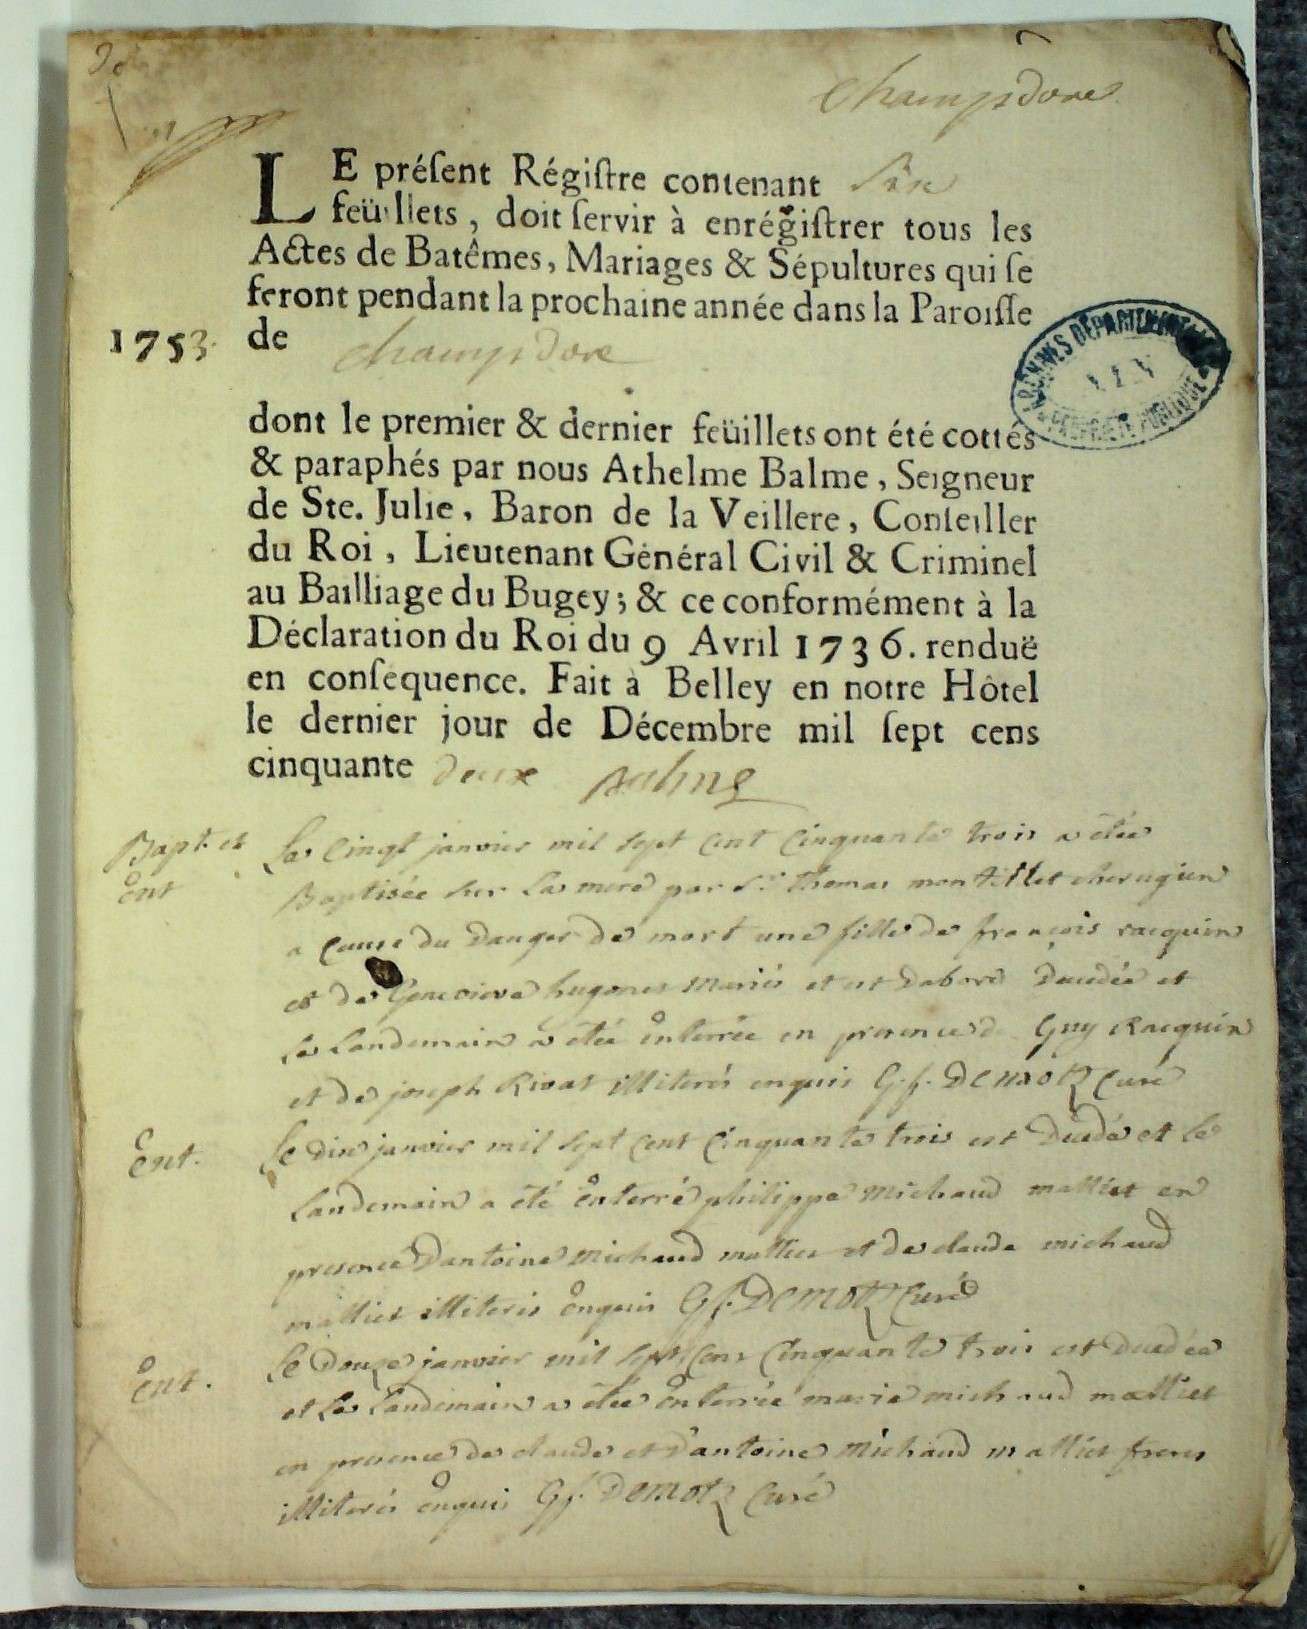 Champdore
LE préſent Régiſtre contenant Six
feüillets, doit ſervir à enrégiſtrer tous les
Actes de Batêmes, Mariages & Sépultures qui ſe
feront pendant la prochaine année dans la Paroiſſe
1753. de champdore
dont le premier & dernier feüillets ont été cottés
& paraphés par nous Athelme Balme, Seigneur
de Ste. Julie, Baron de la Veillere, Conſeiller
du Roi, Lieutenant Général Civil & Criminel
au Bailliage du Bugey; & ce conformément à la
Déclaration du Roi du 9 Avril 1736. renduë
en conſequence. Fait à Belley en notre Hôtel
le dernier jour de Décembre mil ſept cens
cinquante deux Balme
Bapt. et Le Cinqt janvier mil sept cent Cinquante trois a étée
Ent Baptisée sur la mere par Sr. Thomas montillet chirugien
a Cause du Danger de mort une fille de françois racquin
et de Genevieve hugonet Mariés et est Dabord Decedée et
Le Landemain a étée Enterrée en presence de Guy Racquin
et de joseph Rivat illiterés enquis G. f. DEMOTZ Curé
Ent. Le Dix janvier mil sept cent Cinquante trois est Decedé et le
Landemain a été Enterré philippe Michaud mattiet en
presence Dantoine Michaud mattiet et de claude michaud
mattiet illiterés Enquis G f. DEMOTZ Curé
Ent. Le Douze janvier mil sept Cent Cinquante trois est Decedée
et Le Landemain a étée Enterrée marie michaud mattiet
en presence de claude et D'antoine Michaud mattiet freres
illiterés Enquis G f. DEMOTZ Curé